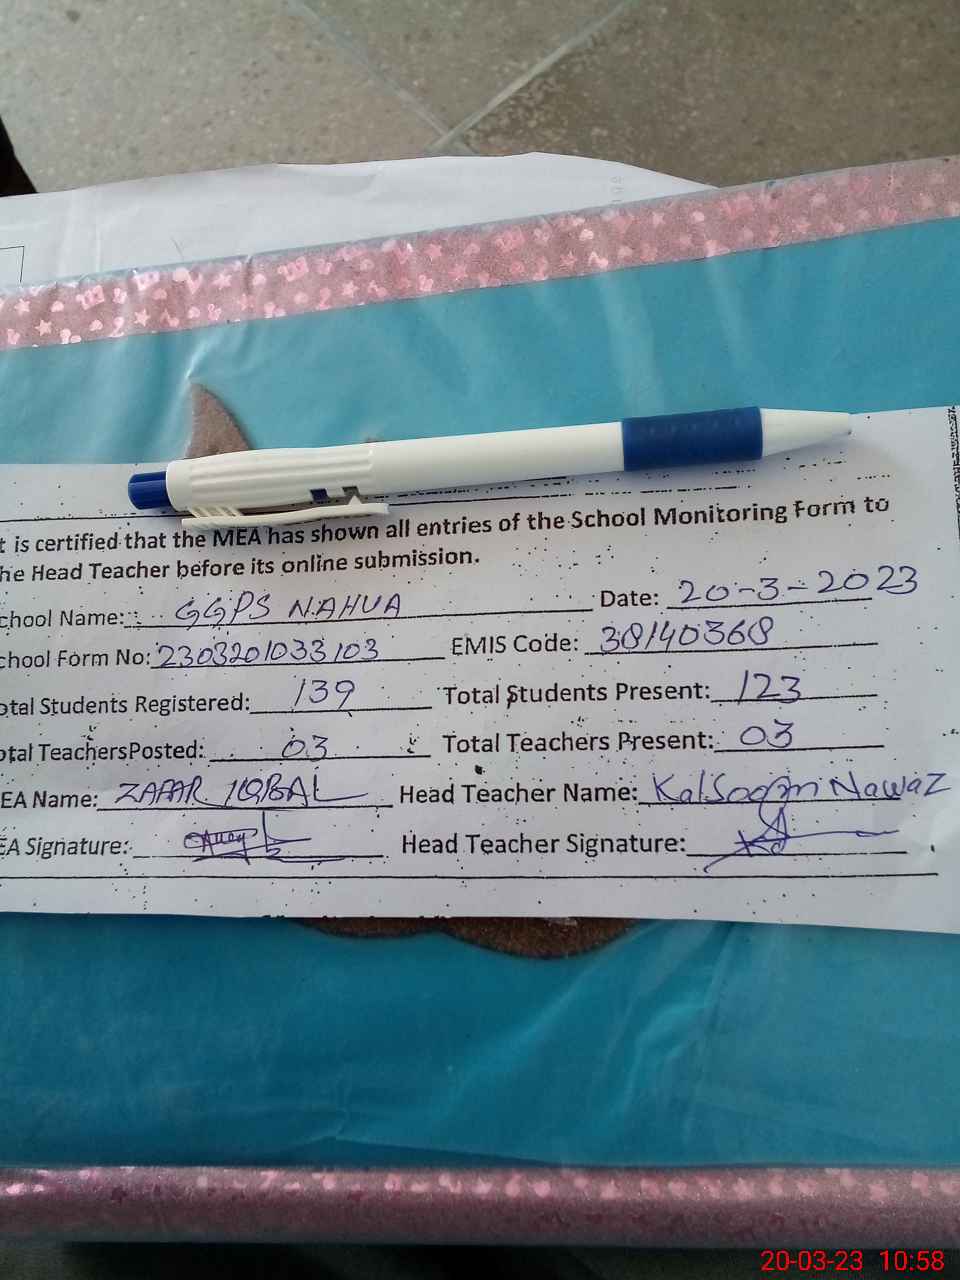 t is certified that the MEA has shown all entries of the School Monitoring Form to
he Head Teacher before its online submission.
chool Name: GGPS NAHUA Date: 20-3-2023
chool Form No: 2303201033103 EMIS Code: 38140368
otal Students Registered: 139 Total Students Present: 123
otal TeachersPosted: 03 Total Teachers Present: 03
EA Name: ZAFAR IQBAL Head Teacher Name: Kalsoom Nawaz
EA Signature: Head Teacher Signature:
20-03-23 10:58